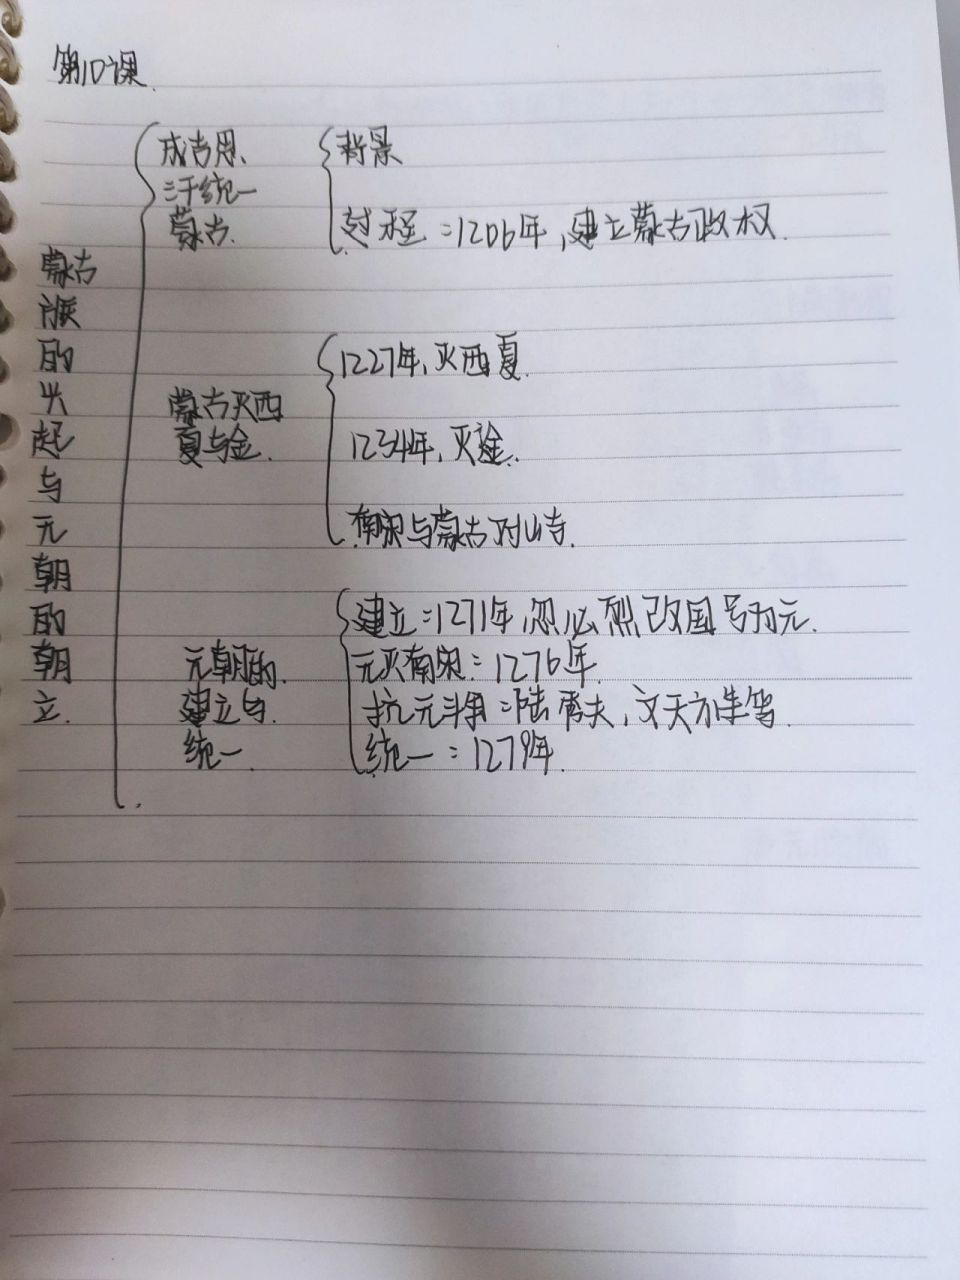 第10课
蒙古
族
的
兴
起
与
元
朝
的
朝
立.
成吉思、
三干统一
蒙古.
背景
过程：1206年,建立蒙古政权.
蒙古灭西
夏与金.
1227年,灭西夏.
1234年,灭金.
南宋与蒙古对峙.
元朝的.
建立与.
统一.
建立：1271年,忽必烈改国号为元.
元灭南宋：1276年.
抗元斗争：陆秀夫,文天祥等.
统一：1279年.